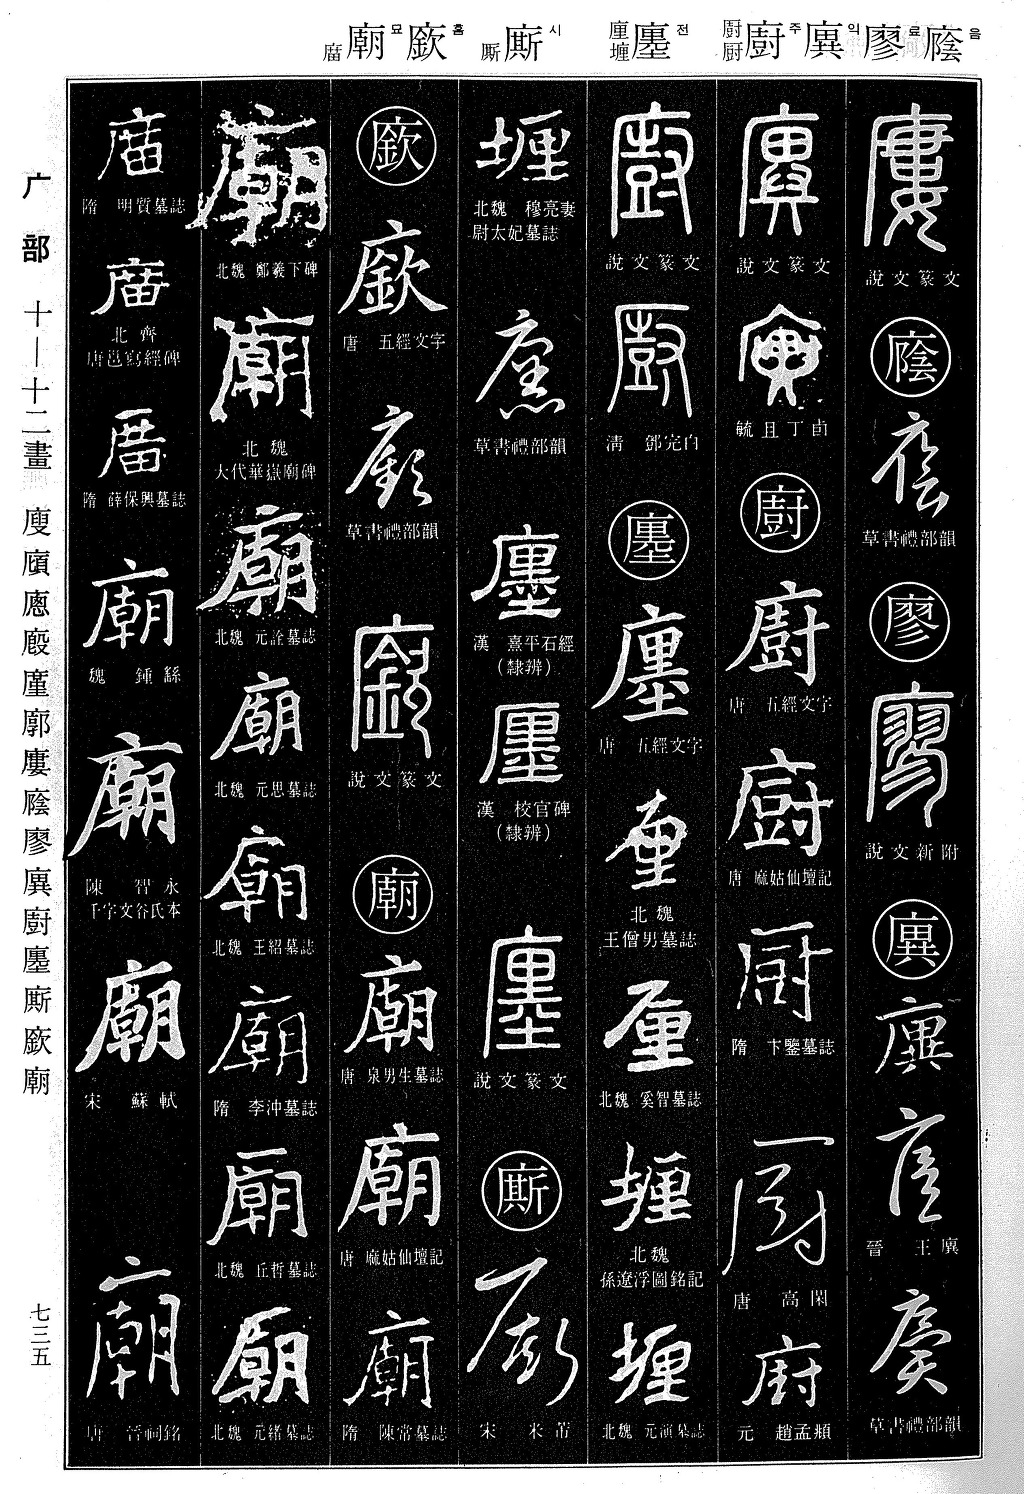 廕음 廖료 廙익 廚주 廚厨 廛전 廛壥 廝시 厮 廞흠 廟묘 庿
說文篆文
廕
草書禮部韻
廖
說文新附
廙
晉 王廙
草書禮部韻
說文篆文
毓且丁卣
廚
唐 五經文字
唐 麻姑仙壇記
隋 卞鑒墓誌
唐 高閑
元 趙孟頫
說文篆文
清 鄧完白
廛
唐 五經文字
北魏
王僧男墓誌
北魏 奚智墓誌
北魏
孫遼浮圖銘記
北魏 元演墓誌
北魏 穆亮妻
尉太妃墓誌
草書禮部韻
漢 熹平石經
(隸辨)
漢 校官碑
(隸辨)
說文篆文
廝
宋 米芾
廞
唐 五經文字
草書禮部韻
說文篆文
廟
唐 泉男生墓誌
唐 麻姑仙壇記
隋 陳常墓誌
北魏 鄭羲下碑
北魏
大代華嶽廟碑
北魏 元詮墓誌
北魏 元思墓誌
北魏 王紹墓誌
隋 李沖墓誌
北魏 丘哲墓誌
北魏 元緒墓誌
隋 明質墓誌
北齊
唐邕寫經碑
隋 薛保興墓誌
魏 鍾繇
陳 智永
千字文谷氏本
宋 蘇軾
唐 晉祠銘
广部 十—十二畫 廋廎廒廄廑廓廔廕廖廙廚廛廝廞廟
七三五